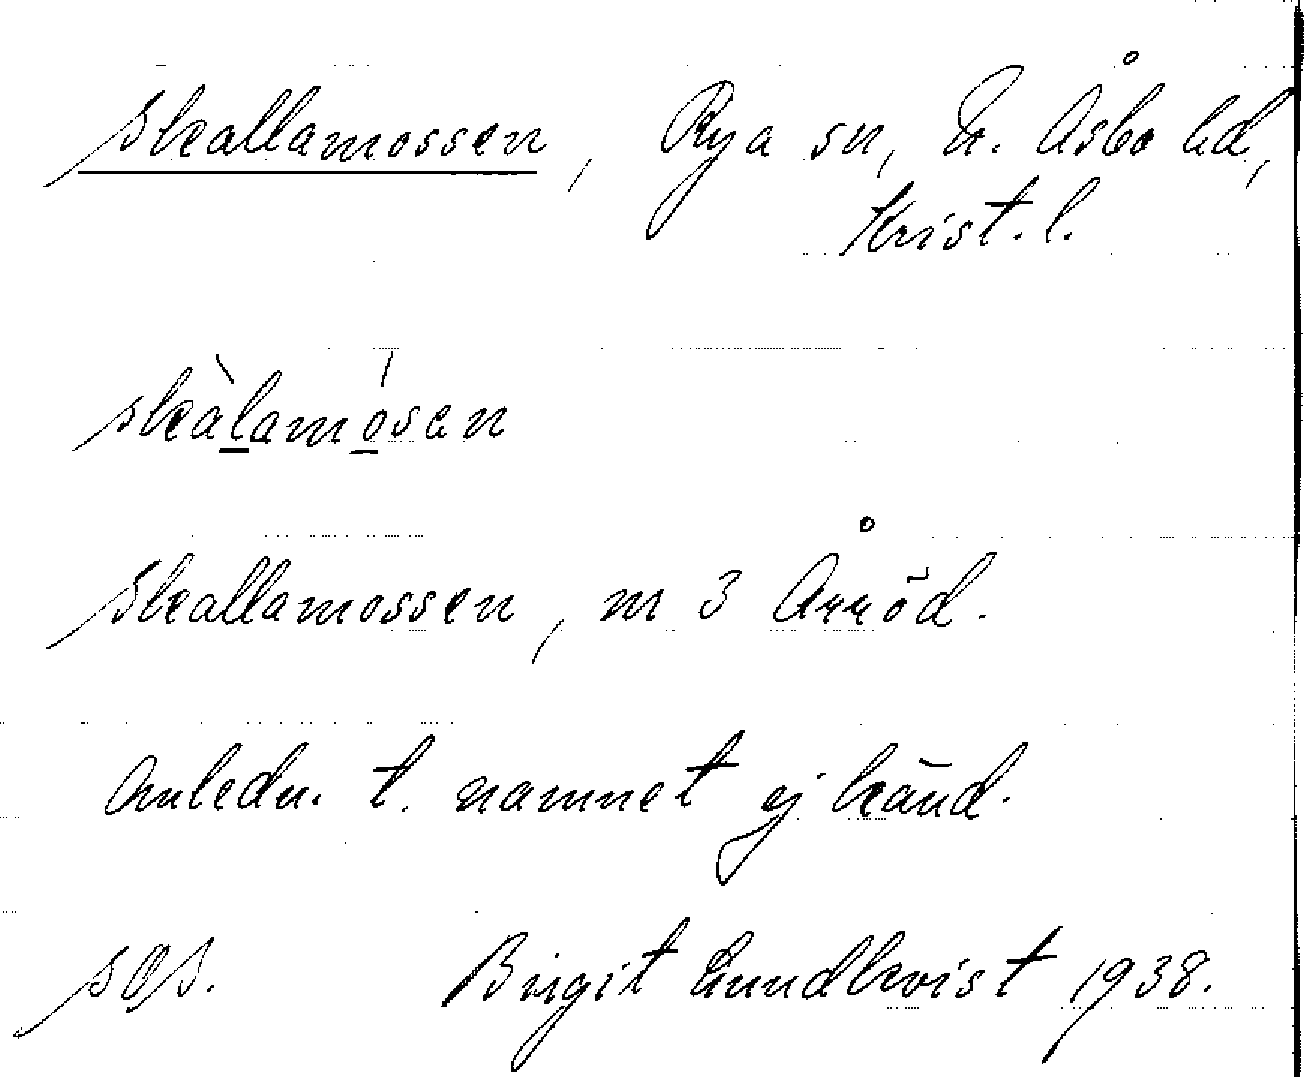 Skallamossen, Rya sn, N. Åsbo hd,
Krist. l.
skàlamósen
Skallamossen, m 3 Årröd.
Anledn. t. namnet ej känd.
Birgit Lundkvist 1938.